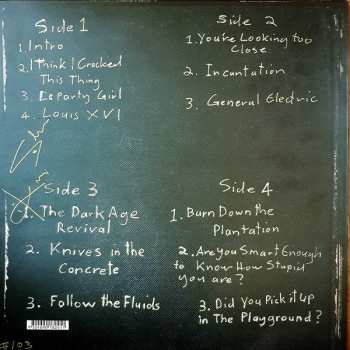 Side 1
1. Intro
2. I Think I Cracked
This Thing
3. Departy Girl
4. Louis XVI
Side 2
1. You're Looking too
Close
2. Incantation
3. General Electric
Side 3
1. The Dark Age
Revival
2. Knives in the
Concrete
3. Follow the Fluids
Side 4
1. Burn Down the
Plantation
2. Are You Smart Enough
to Know How Stupid
you are?
3. Did you Pick it Up
in The Playground?
#103